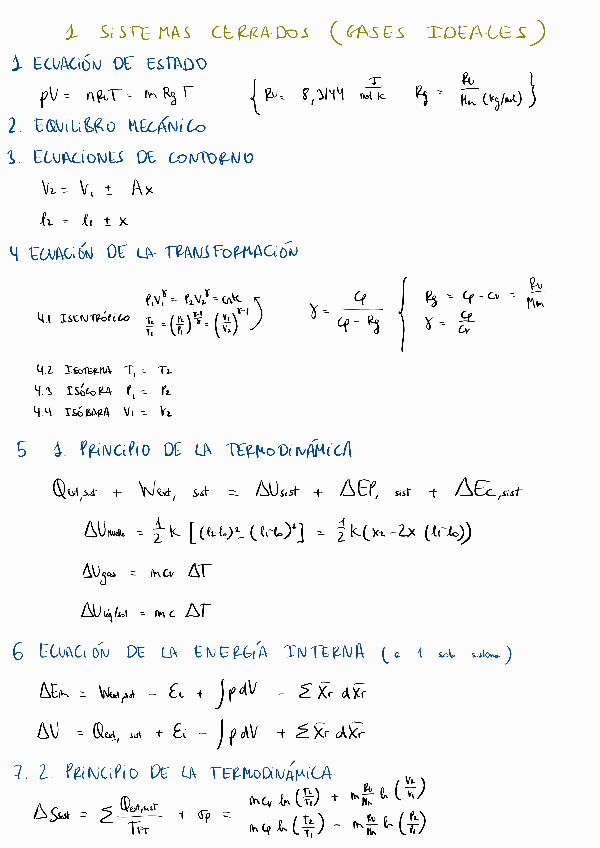 1 SISTEMAS CERRADOS (GASES IDEALES)
1 ECUACIÓN DE ESTADO
pV = nRuT = m Rg T { Ru = 8,3144 J/mol K Rg = Ru/Mm (kg/mol) }
2. EQUILIBRO MECÁNICO
3. ECUACIONES DE CONTORNO
V2 = V1 ± Ax
l2 = l1 ± x
4 ECUACIÓN DE LA TRANSFORMACIÓN
4.1 ISENTRÓPICO P1V1^γ = P2V2^γ = cnte
T2/T1 = (P2/P1)^((γ-1)/γ) = (V1/V2)^(γ-1)
γ = Cp/(Cp - Rg) { Rg = Cp - Cv = Ru/Mm
γ = Cp/Cv
4.2 ISOTERMA T1 = T2
4.3 ISÓCORA P1 = P2
4.4 ISÓBARA V1 = V2
5 1. PRINCIPIO DE LA TERMODINÁMICA
Qext,sist + Wext, sist = ΔUsist + ΔEP, sist + ΔEc,sist
ΔUmuelle = 1/2 K [(l2-l0)² - (l1-l0)²] = 1/2 K(x2 - 2x (l1-l0))
ΔUgas = mcv ΔT
ΔUliq/sol = mc ΔT
6 ECUACIÓN DE LA ENERGÍA INTERNA (a 1 sub sistema)
ΔEm = Wext,sist - Ei + ∫pdV - Σ X̄r dx̄r
ΔU = Qext, sist + Ei - ∫pdV + Σ X̄r dx̄r
7. 2. PRINCIPIO DE LA TERMODINÁMICA
ΔSsist = Σ Qext,sist/TFT + σp = mcv ln (T2/T1) + m Ru/Mm ln (V2/V1)
mcp ln (T2/T1) - m Ru/Mm ln (P2/P1)